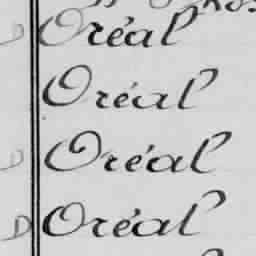 Oréal
Oréal
Oréal
D Oréal